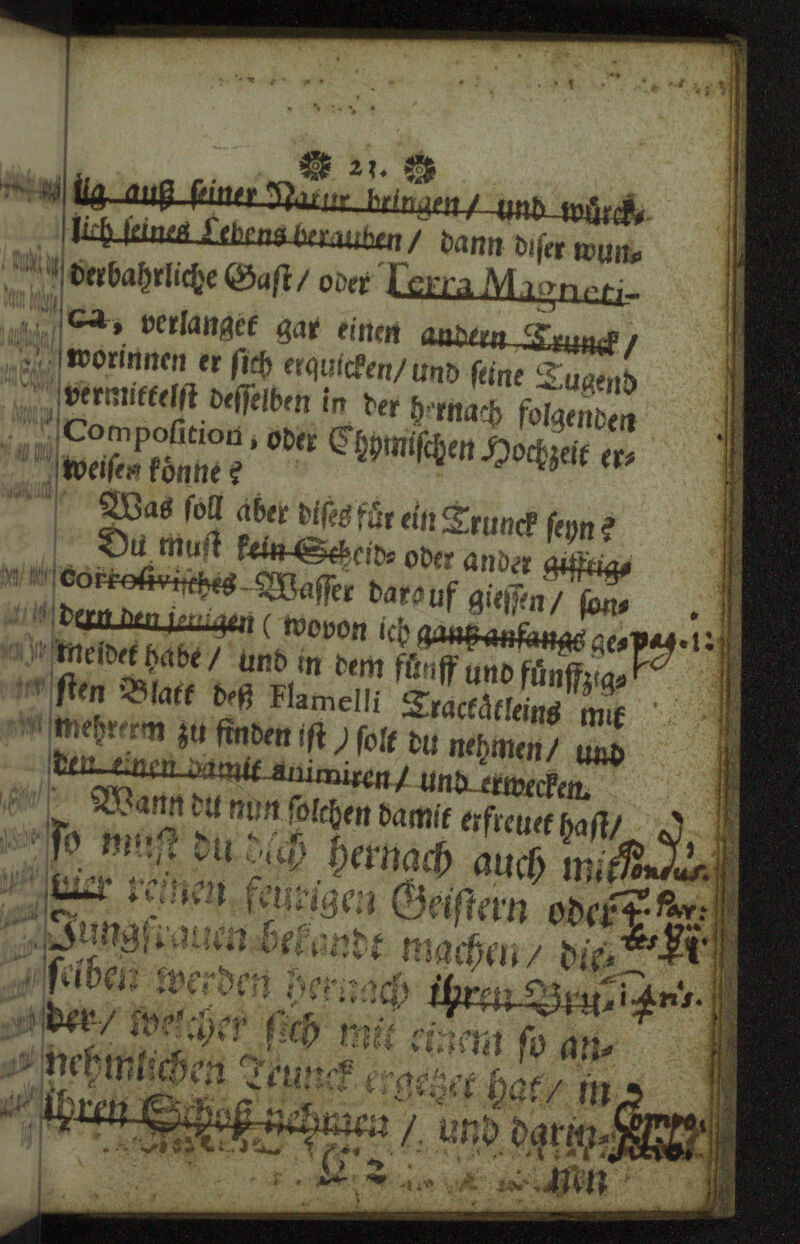 21.
lig auß seiner Natur bringen / und würck⸗
lich seines Lebens berauben / dann diser wun⸗
derbahrliche Gast / oder Terra Magneti-
ca, verlanget gar einen andern Trunck /
worinnen er sich erquicken / und seine Tugend
vermittelst desselben in der hernach folgenden
Composition, oder Chymischen Hochzeit er⸗
weisen könne?
Was soll aber dises für ein Trunck seyn?
Du must kein Scheid⸗ oder ander gifftig⸗
Corrosivisches Wasser darauf giessen / son⸗
dern den jenigen ( wovon ich gantz anfangs ge⸗ pag. 12
meldet habe / und in dem fünff und fünffzig⸗
sten Blatt deß Flamelli Tractätleins mit
mehrerm zu finden ist ) solt du nehmen / und
den einen damit animiren / und erwecken.
Wann du nun solchen damit erfreuet hast /
so must du dich hernach auch mit
vier reinen feurigen Geistern oder
Jungfrauen bekandt machen / die⸗
selben werden hernach ihren Bru⸗
der / welcher sich mit einem so an⸗
nehmlichen Trunck ergetzet hat / in
ihren Schoß nehmen / und darin⸗
C 2 nen